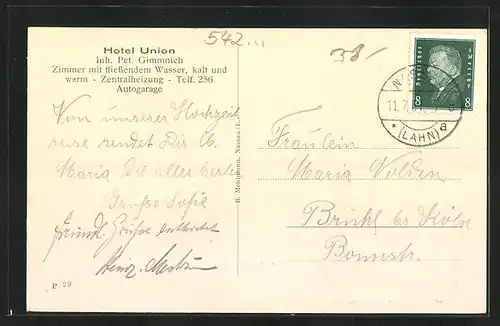 542...
38-
Hotel Union
Inh. Pet. Gimmnich
Zimmer mit fließendem Wasser, kalt und
warm - Zentralheizung - Telf. 256
Autogarage
Von unserer Hochzeit
reise sendet Dir lb.
Maria Die aller herzl.
Grüsse Sofie
Freundl. Grüsse entbietet
Heinz
P 29
Nassau (L.
Deutsches Reich
8 8
11.7.
(LAHN) a
Fräulein
Maria Nolden
Brühl bei Köln
Bonnstr.